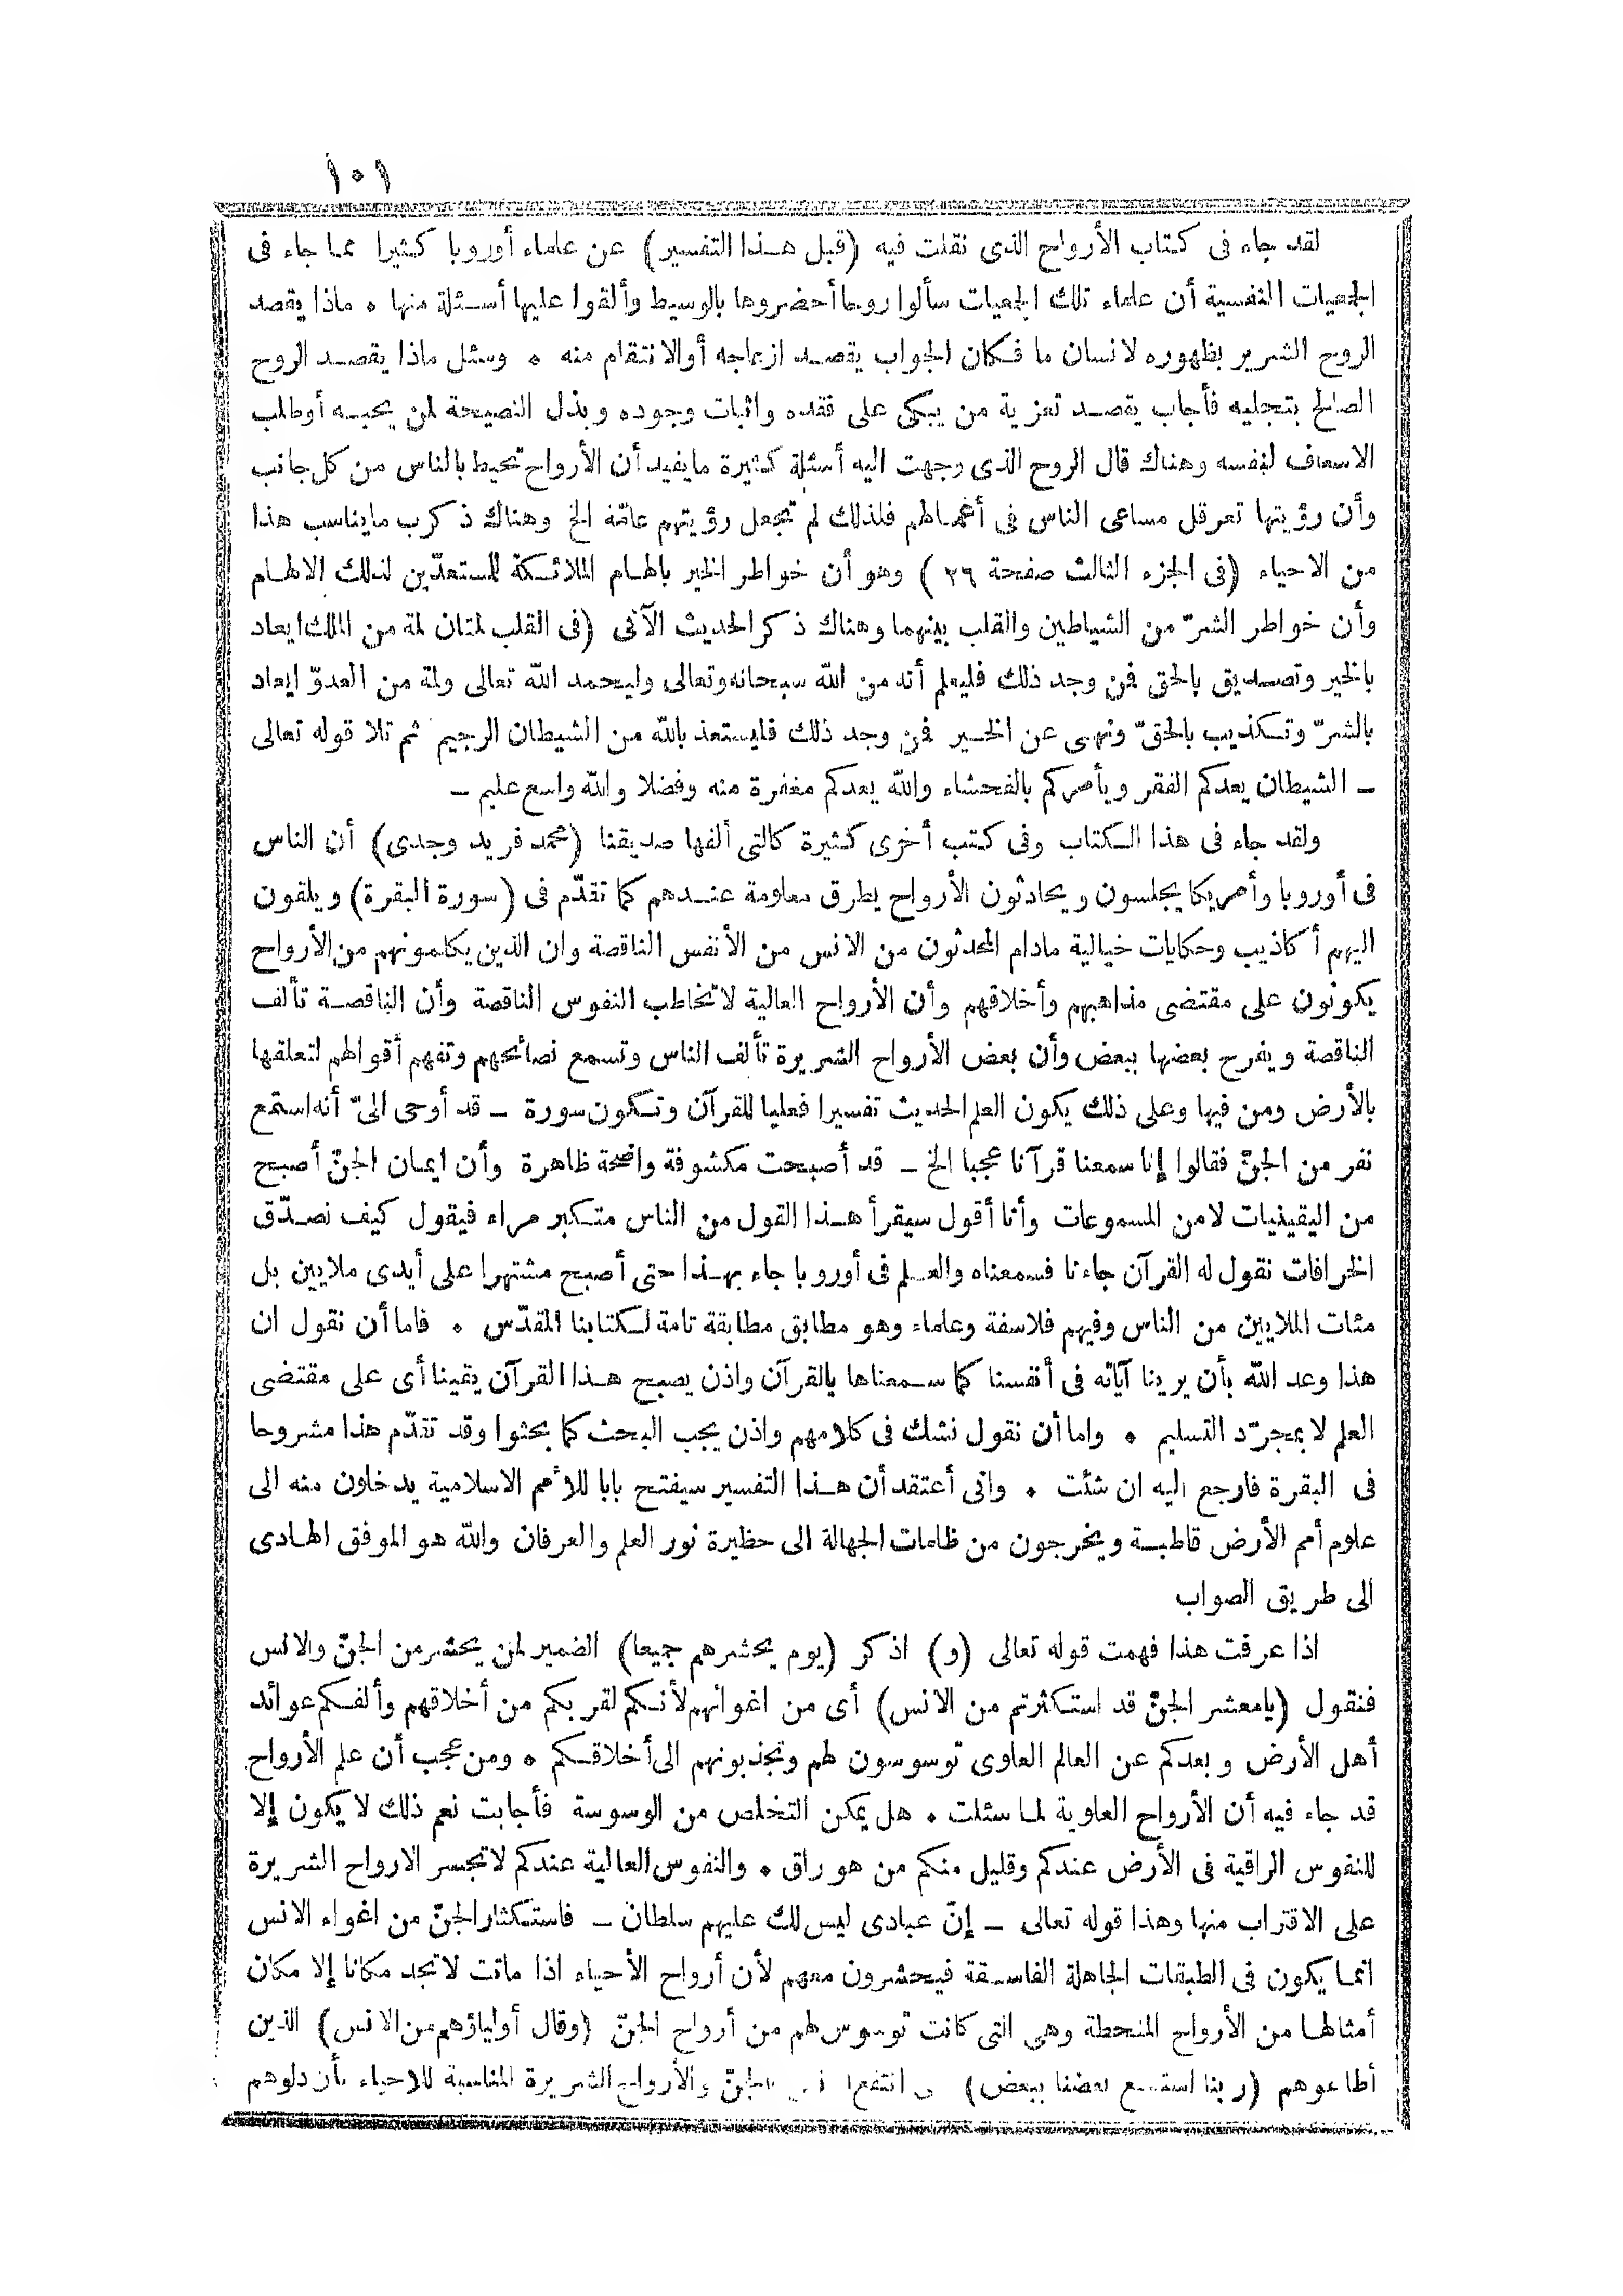 ١٠١
لقد جاء فى كتاب الأرواح الذى نقلت فيه (قبل هذا التفسير) عن علماء أوروبا كثيرا مما جاء فى
الجمعيات النفسية أن علماء تلك الجمعيات سألوا روحا أحضروها بالوسيط وألقوا عليها أسئلة منها • ماذا يقصد
الروح الشرير بظهوره لانسان ما فكان الجواب يقصد ازعاجه أوالانتقام منه • وسئل ماذا يقصد الروح
الصالح بتجليه فأجاب يقصد تعزية من يبكى على فقده واثبات وجوده وبذل النصيحة لمن يحبه أوطلب
الاسعاف لنفسه وهناك قال الروح الذى وجهت اليه أسئلة كثيرة مايفيد أن الأرواح تحيط بالناس من كل جانب
وأن رؤيتها تعرقل مساعى الناس فى أعمالهم فلذلك لم تجعل رؤيتهم عامّة الخ وهناك ذكرت مايناسب هذا
من الاحياء (فى الجزء الثالث صفحة ٢٦) وهو أن خواطر الخير بالهام الملائكة للمستعدّين لذلك الالهام
وأن خواطر الشرّ من الشياطين والقلب بينهما وهناك ذكر الحديث الآتى (فى القلب لمتان لمة من الملك ايعاد
بالخير وتصديق بالحق فمن وجد ذلك فليعلم أنه من الله سبحانه وتعالى وليحمد الله تعالى ولمة من العدوّ ايعاد
بالشرّ وتكذيب بالحقّ ونهى عن الخير فمن وجد ذلك فليستعذ بالله من الشيطان الرجيم ثم تلا قوله تعالى
ـ الشيطان يعدكم الفقر ويأمركم بالفحشاء والله يعدكم مغفرة منه وفضلا والله واسع عليم ـ
ولقد جاء فى هذا الكتاب وفى كتب أخرى كثيرة كالتى ألفها صديقنا (محمد فريد وجدى) أن الناس
فى أوروبا وأمريكا يجلسون ويحادثون الأرواح بطرق معلومة عندهم كما تقدّم فى (سورة البقرة) ويلقون
اليهم أكاذيب وحكايات خيالية مادام المحدثون من الانس من الأنفس الناقصة وان الذين يكلمونهم من الأرواح
يكونون على مقتضى مذاهبهم وأخلاقهم وأن الأرواح العالية لاتخاطب النفوس الناقصة وأن الناقصة تألف
الناقصة ويفرح بعضها ببعض وأن بعض الأرواح الشريرة تألف الناس وتسمع نصائحهم وتفهم أقوالهم لتعلقها
بالأرض ومن فيها وعلى ذلك يكون العلم الحديث تفسيرا فعليا للقرآن وتكون سورة ـ قد أوحى الىّ أنه استمع
نفر من الجنّ فقالوا إنا سمعنا قرآنا عجبا الخ ـ قد أصبحت مكشوفة واضحة ظاهرة وأن ايمان الجنّ أصبح
من اليقينيات لامن المسموعات وأنا أقول سيقرأ هذا القول من الناس متكبر مراء فيقول كيف نصدّق
الخرافات نقول له القرآن جاءنا فسمعناه والعلم فى أوروبا جاء بهذا حتى أصبح مشتهرا على أيدى ملايين بل
مئات الملايين من الناس وفيهم فلاسفة وعلماء وهو مطابق مطابقة تامة لكتابنا المقدّس • فاما أن نقول ان
هذا وعد الله بأن يرينا آياته فى أنفسنا كما سمعناها بالقرآن واذن يصبح هذا القرآن يقينا أى على مقتضى
العلم لا بمجرّد التسليم • واما أن نقول نشك فى كلامهم واذن يجب البحث كما بحثوا وقد تقدّم هذا مشروحا
فى البقرة فارجع اليه ان شئت • وانى أعتقد أن هذا التفسير سيفتح بابا للأمم الاسلامية يدخلون منه الى
علوم أمم الأرض قاطبة ويخرجون من ظلمات الجهالة الى حظيرة نور العلم والعرفان والله هو الموفق الهادى
الى طريق الصواب
اذا عرفت هذا فهمت قوله تعالى (و) اذكر (يوم يحشرهم جميعا) الضمير لمن يحشر من الجنّ والانس
فنقول (يامعشر الجنّ قد استكثرتم من الانس) أى من اغوائهم لأنكم لقربكم من أخلاقهم وألفكم عوائد
أهل الأرض وبعدكم عن العالم العلوى توسوسون لهم وتجذبونهم الى أخلاقكم • ومن عجب أن علم الأرواح
قد جاء فيه أن الأرواح العلوية لما سئلت • هل يمكن التخلص من الوسوسة فأجابت نعم ذلك لا يكون إلا
للنفوس الراقية فى الأرض عندكم وقليل منكم من هو راق • والنفوس العالية عندكم لاتجسر الارواح الشريرة
على الاقتراب منها وهذا قوله تعالى ـ إنّ عبادى ليس لك عليهم سلطان ـ فاستكثار الجنّ من اغواء الانس
انما يكون فى الطبقات الجاهلة الفاسقة فيحشرون معهم لأن أرواح الأحياء اذا ماتت لاتجد مكانا إلا مكان
أمثالها من الأرواح المنحطة وهى التى كانت توسوس لهم من أرواح الجنّ (وقال أولياؤهم من الانس) الذين
أطاعوهم (ربنا استمتع بعضنا ببعض) انتفع الجنّ والأرواح الشريرة المناسبة للاحياء بأن دلوهم